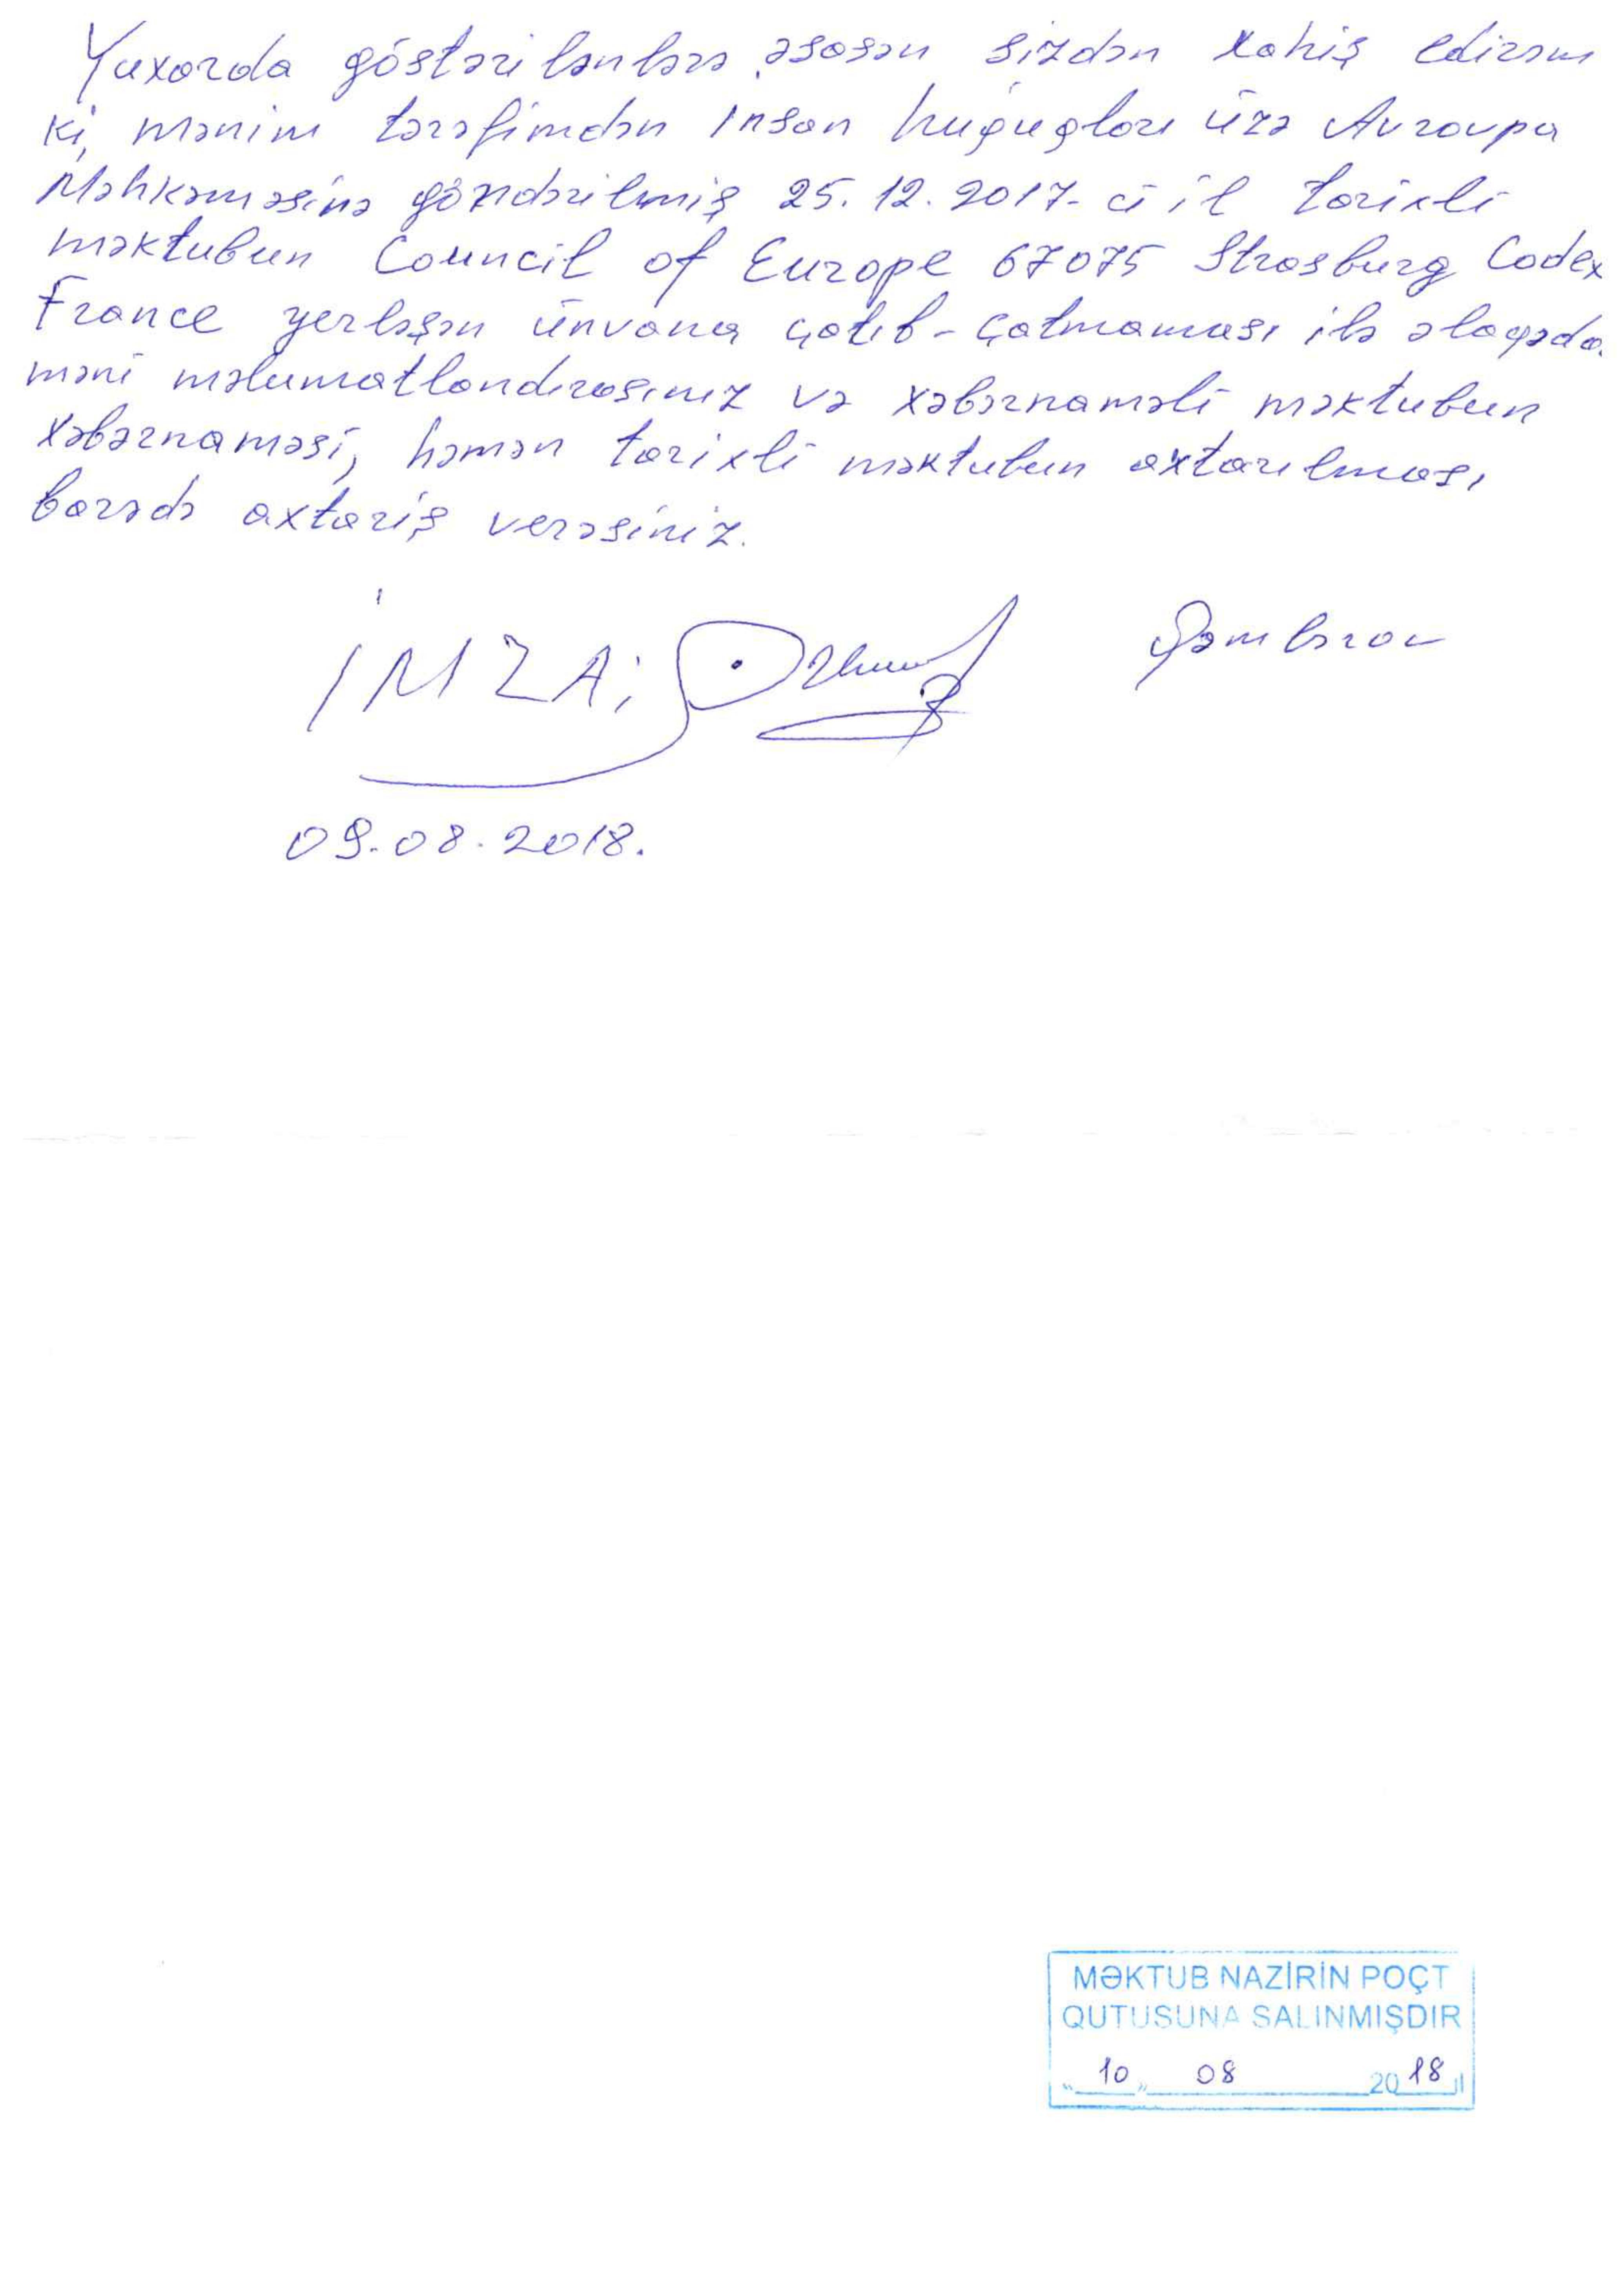 Yuxarda göstərilənlərə əsasən sizdən xahiş edirəm
ki, mənim tərəfimdən Insan huquqları üzrə Avroupa
Məhkəməsinə göndərilmiş 25.12.2017-ci il tarixli
məktubun Council of Europe 67075 Strasburg Codex
France yerləşən ünvana çatıb-çatmaması ilə əlaqəda
məni məlumatlandırasınız və xəbərnaməli məktubun
xəbərnaməsi, həmən tarixli məktubun axtarılması
barədə axtarış verəsiniz.
İMZA:
Qəmbərov
09.08.2018.
MƏKTUB NAZİRİN POÇT
QUTUSUNA SALINMIŞDIR
"10" 08 2018 il